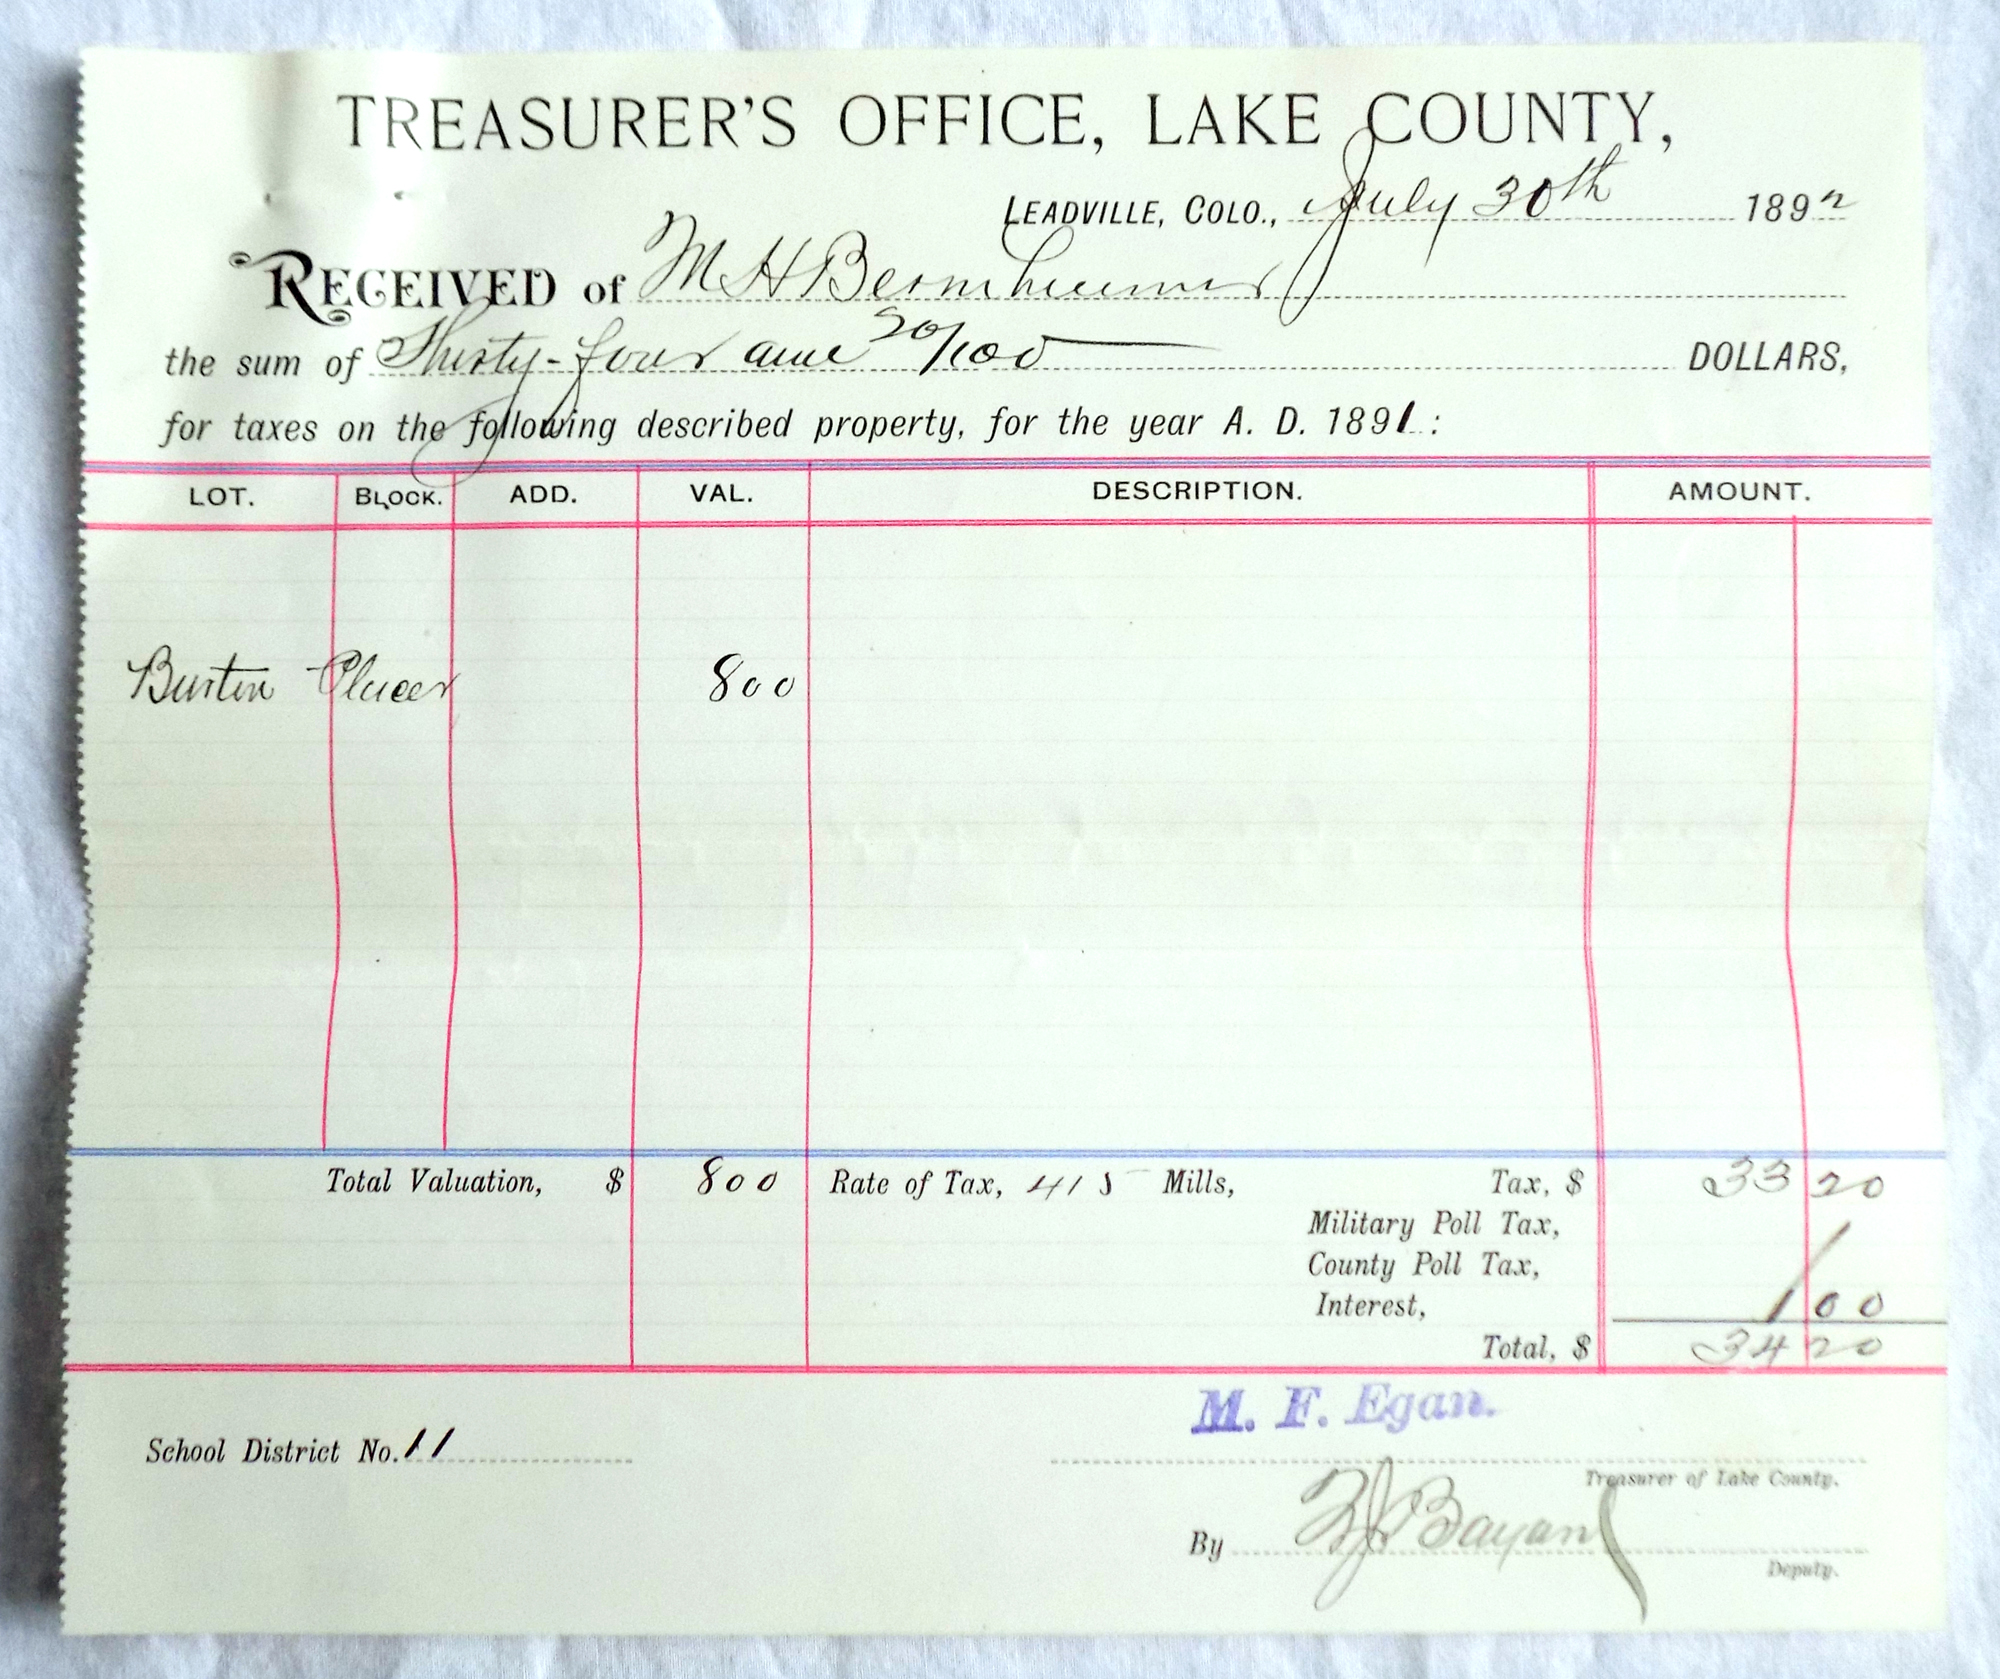 TREASURER'S OFFICE, LAKE COUNTY,
LEADVILLE, COLO., July 30th 1892
RECEIVED of M H Bernheimer
the sum of Thirty-four and 20/100 DOLLARS,
for taxes on the following described property, for the year A. D. 1891 :
LOT. BLOCK. ADD. VAL. DESCRIPTION. AMOUNT.
Burton Placer 800
Total Valuation, $ 800 Rate of Tax, 415 Mills, Tax, $ 33 20
Military Poll Tax,
County Poll Tax,
Interest, 1 00
Total, $ 34 20
M. F. Egan.
School District No. 11
Treasurer of Lake County.
By
Deputy.